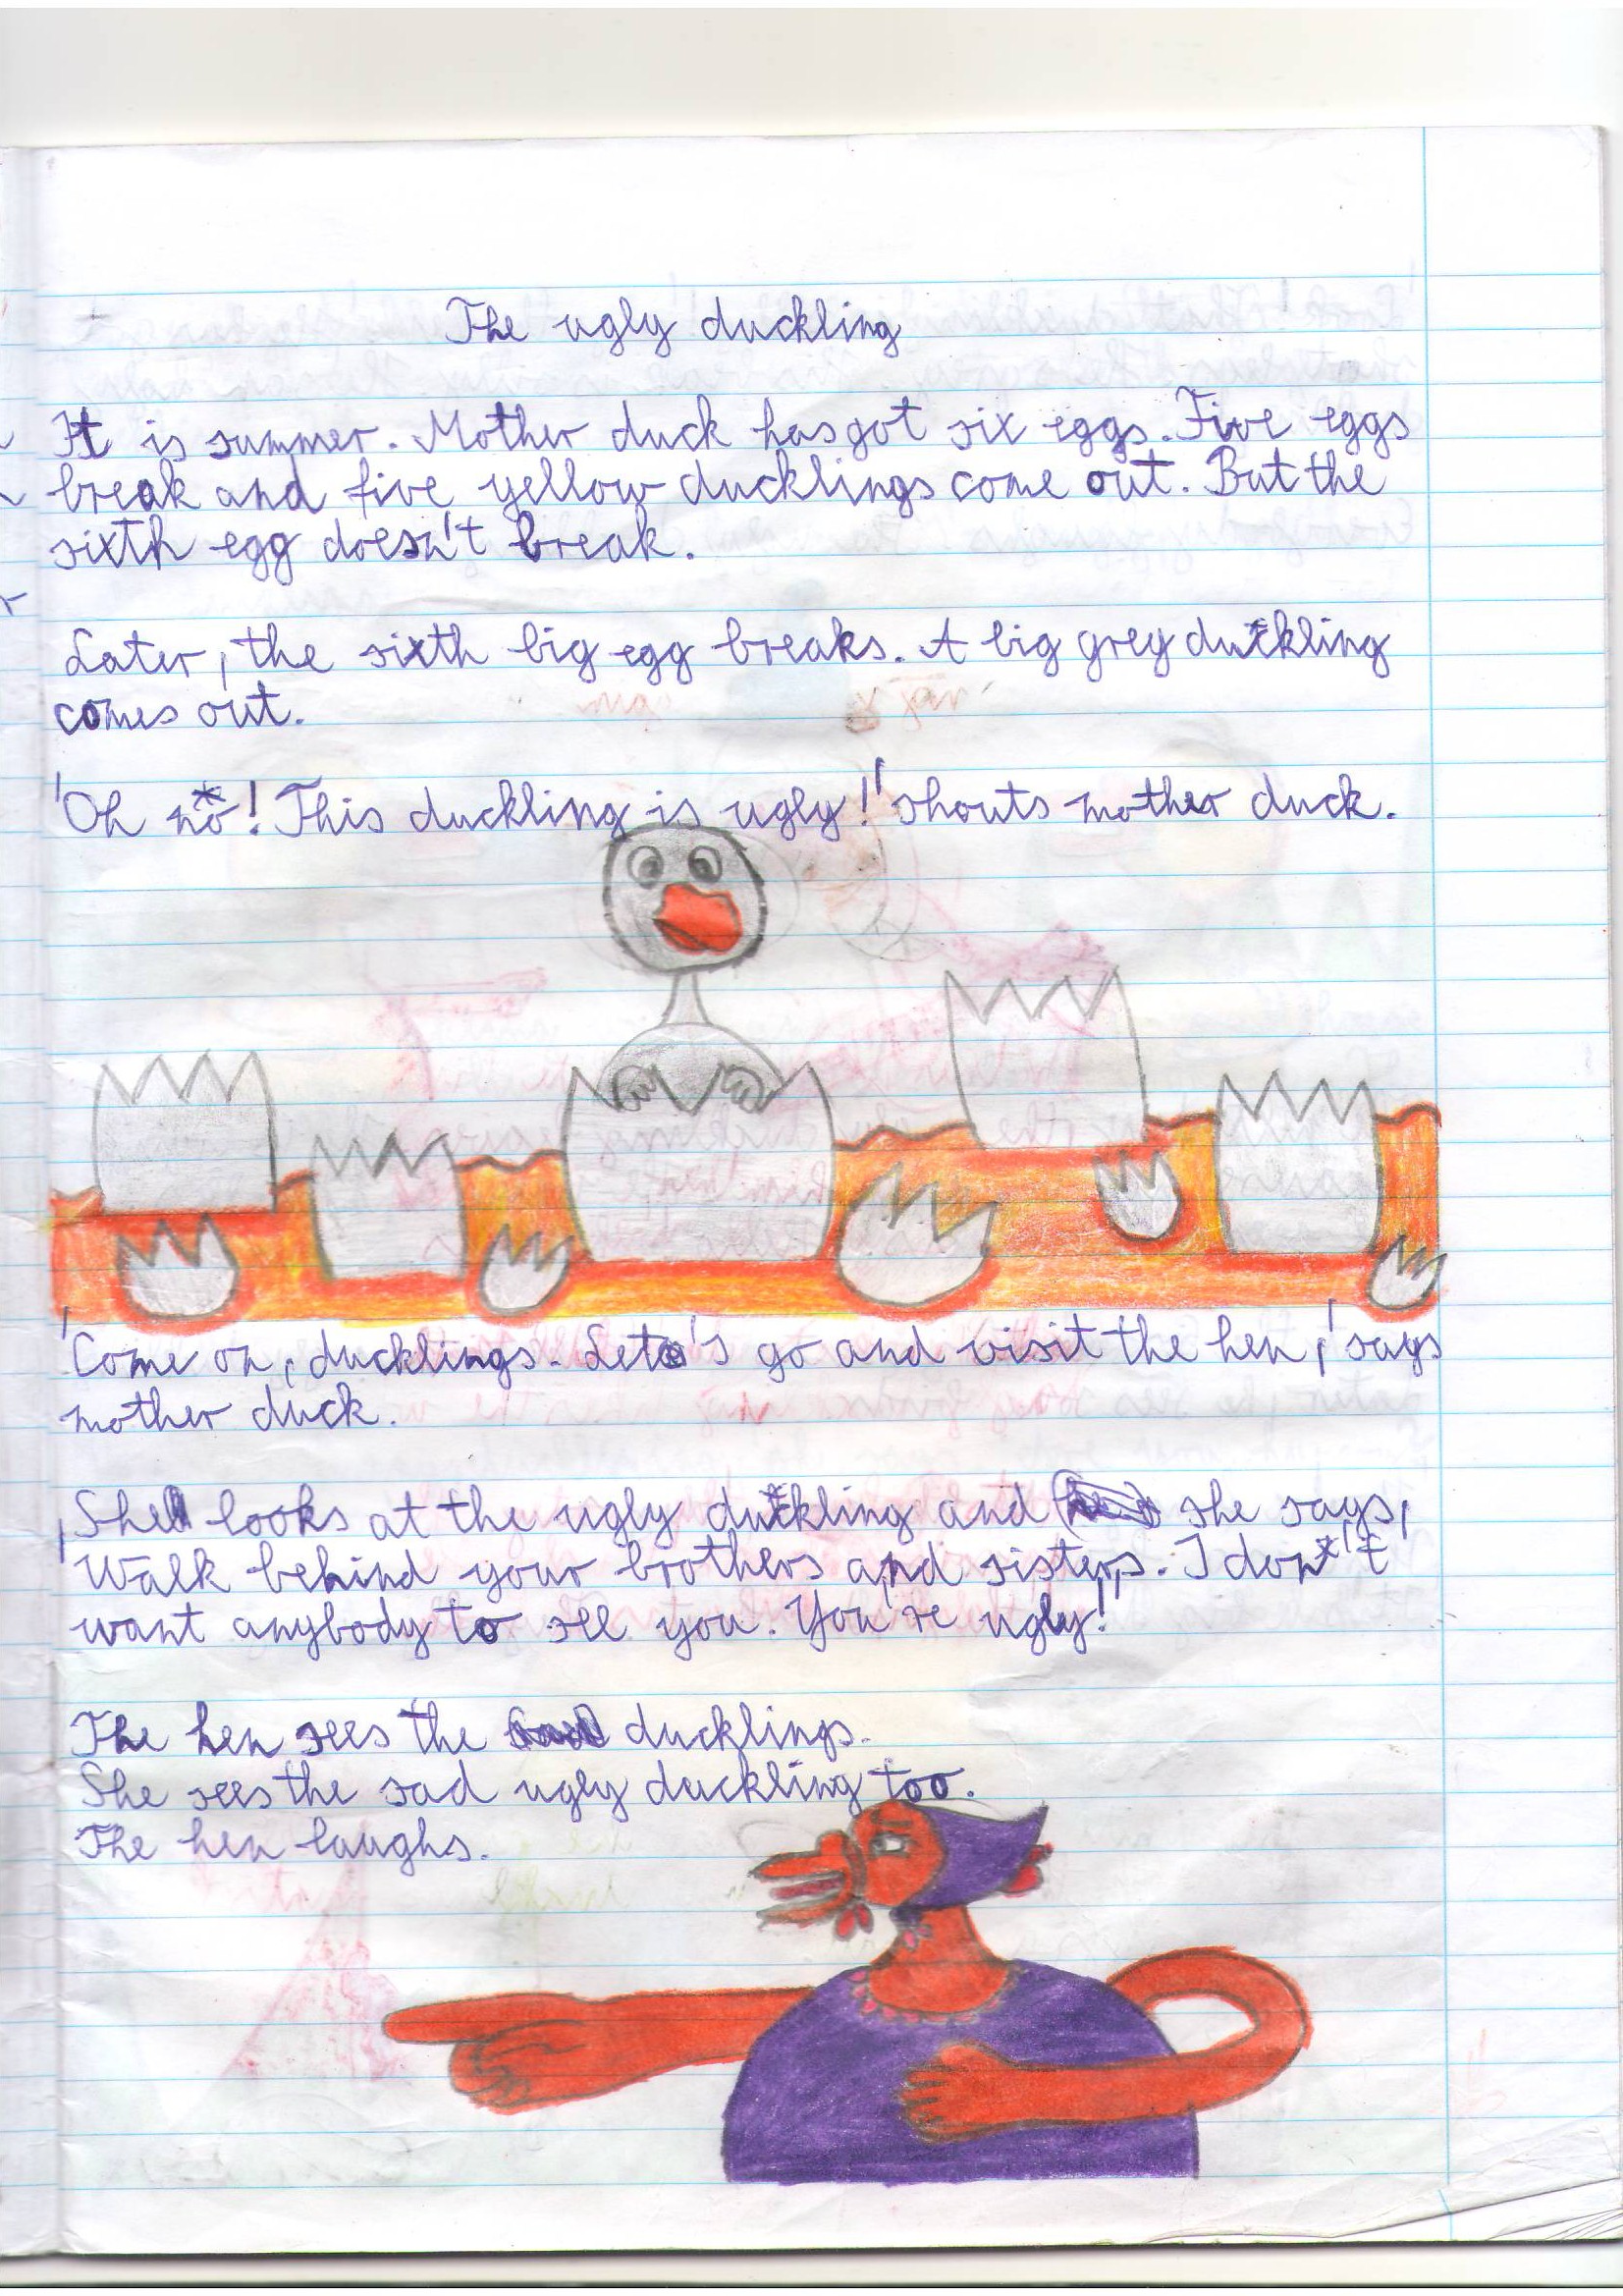 The ugly duckling
It is summer. Mother duck has got six eggs. Five eggs
break and five yellow ducklings come out. But the
sixth egg doesn't break.
Later, the sixth big egg breaks. A big grey duckling
comes out.
'Oh no! This duckling is ugly!' shouts mother duck.
'Come on, ducklings. Let's go and visit the hen,' says
mother duck.
She looks at the ugly duckling and she says,
'Walk behind your brothers and sisters. I don't
want anybody to see you. You're ugly!'
The hen sees the ducklings.
She sees the sad ugly duckling too.
The hen laughs.